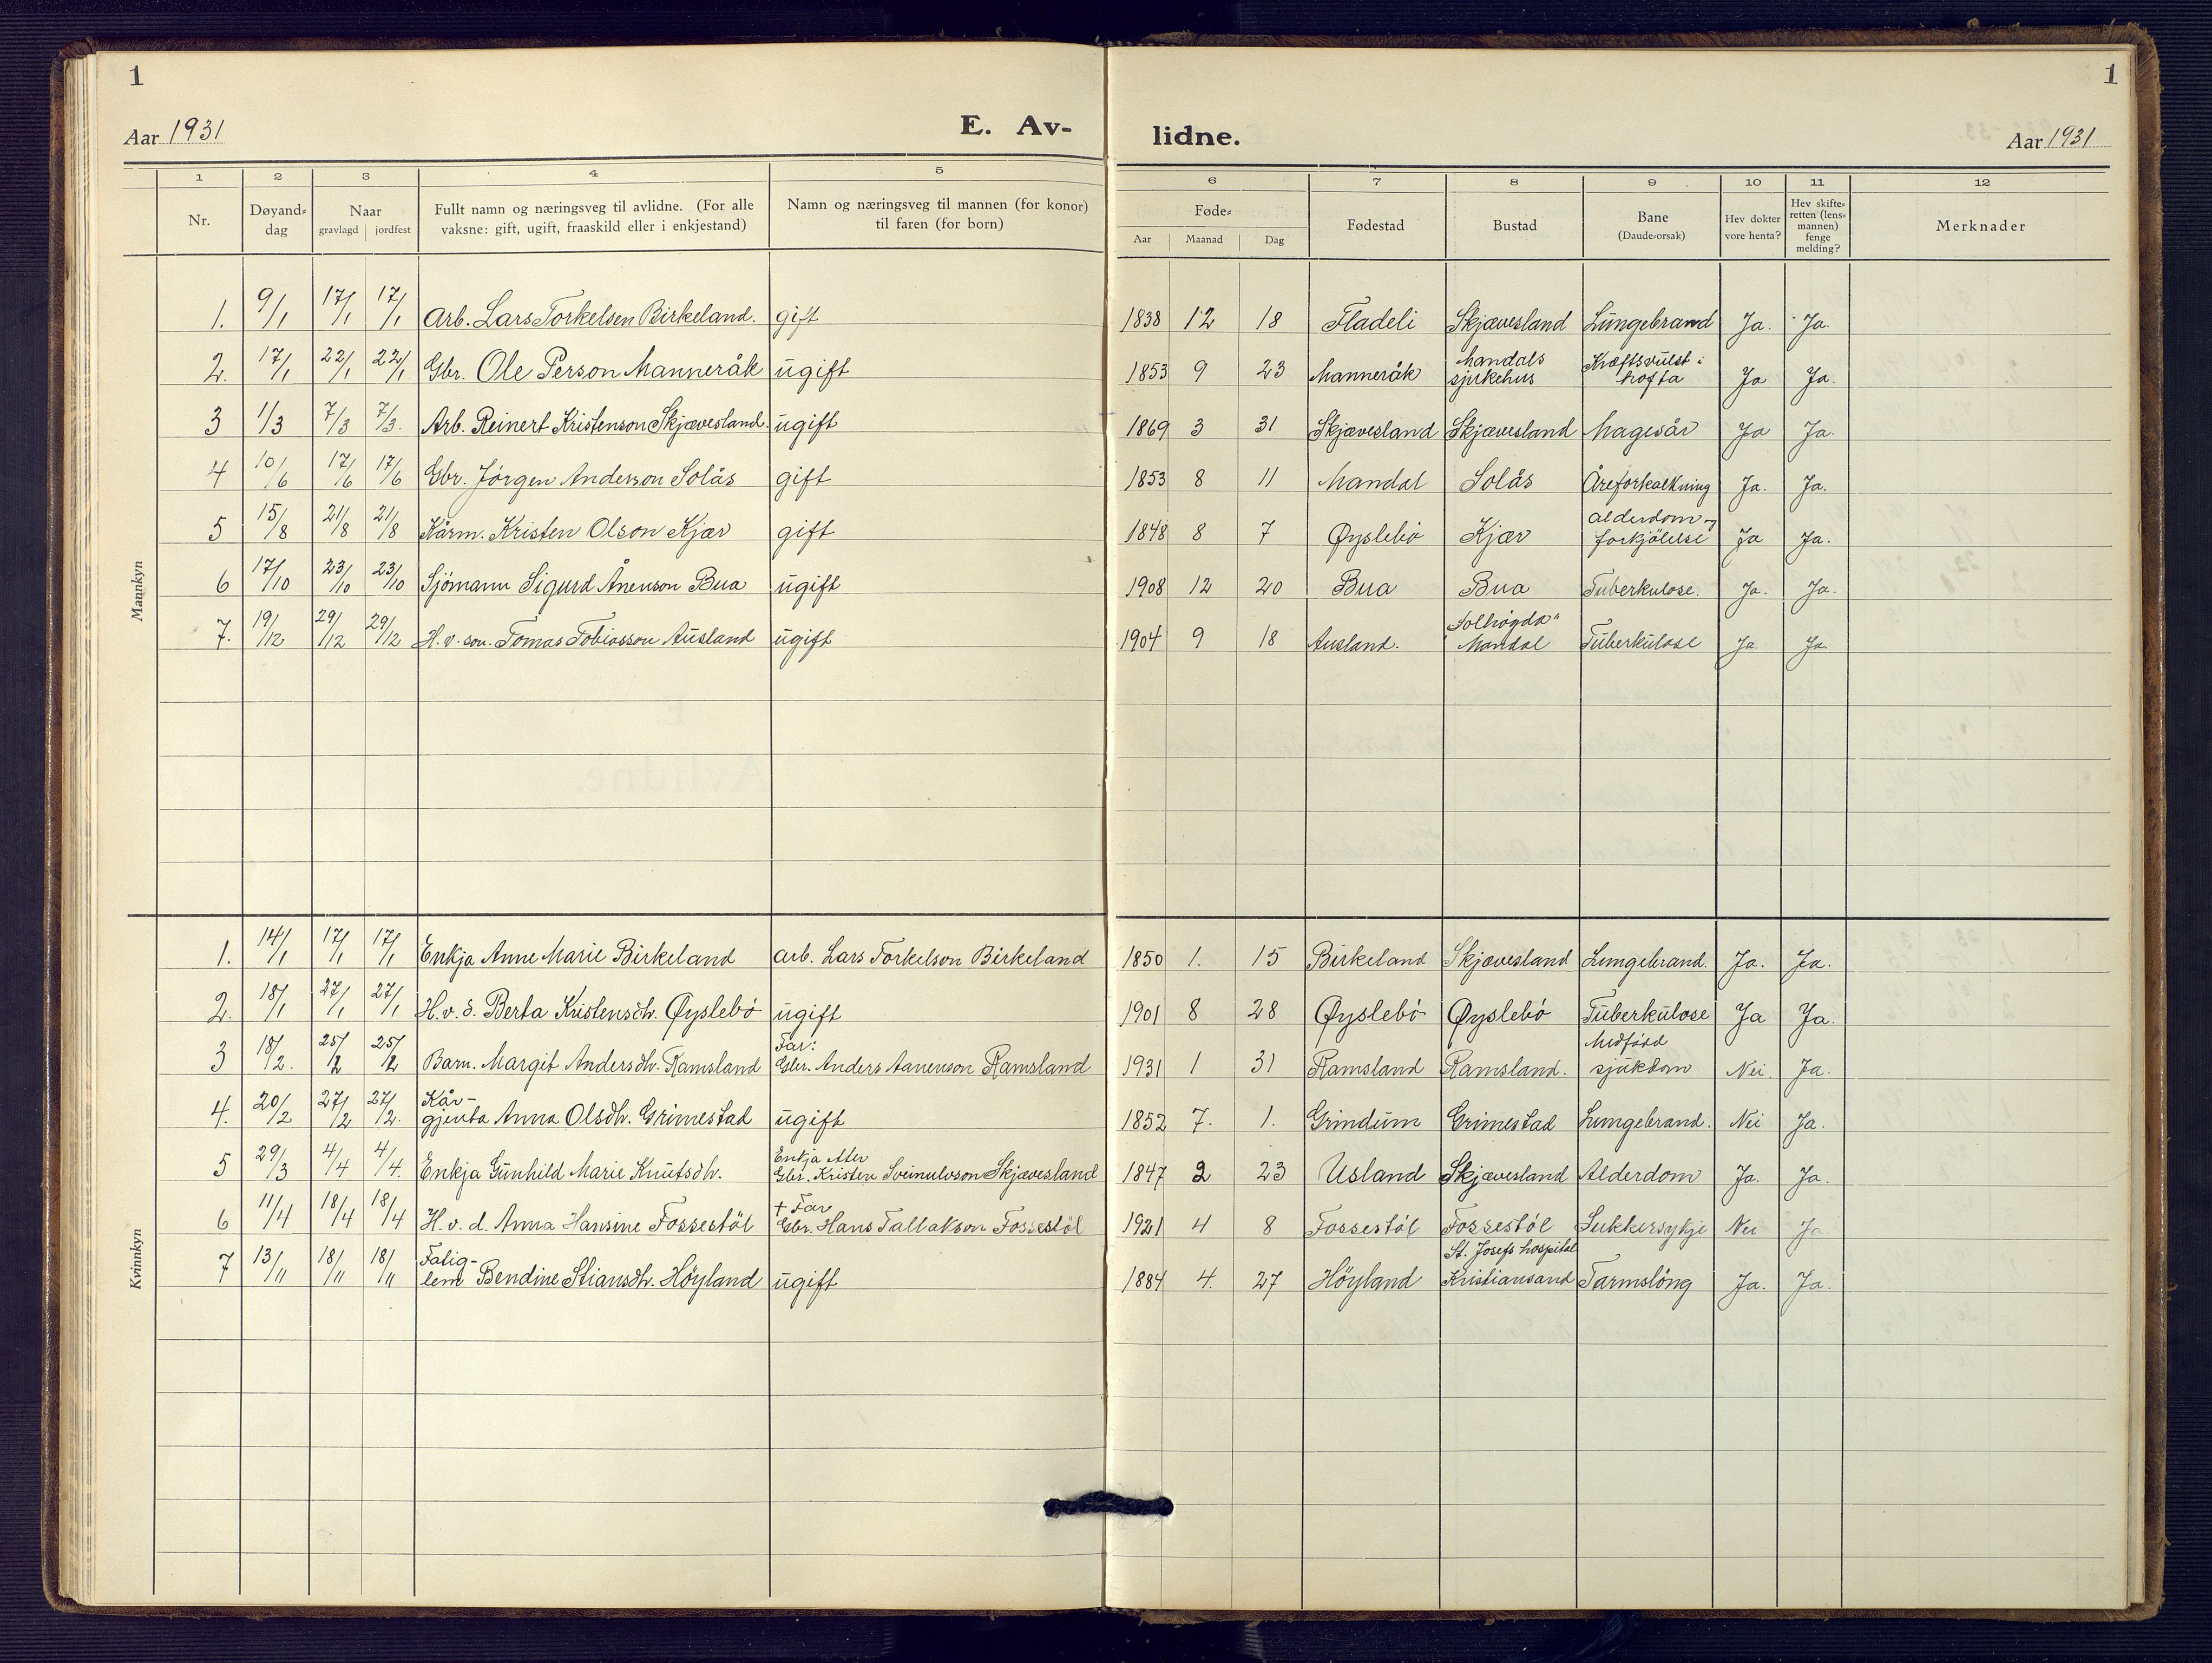 1
1
Aar 1931
E. Av-
lidne.
Aar 1931
1 2 3 4 5 6 7 8 9 10 11 12
Nr.
Døyand=
dag
Naar
gravlagd jordfest
Fullt namn og næringsveg til avlidne. (For alle
vaksne: gift, ugift, fraaskild eller i enkjestand)
Namn og næringsveg til mannen (for konor)
til faren (for born)
Føde=
Aar Maanad Dag
Fødestad
Bustad
Bane
(Daude=orsak)
Hev dokter
vore henta?
Hev skifte=
retten (lens=
mannen)
fenge
melding?
Merknader
Mannkyn
1. 9/1 17/1 17/1 Arb. Lars Torkelsen Birkeland. gift 1838 12 18 Fladeli Skjævesland Lungebrand Ja. Ja.
2. 17/1 22/1 22/1 Gbr. Ole Person Manneråk ugift 1853 9 23 Manneråk Mandals sjukehus Kræftsvulst i hofta Ja Ja.
3 1/3 7/3 7/3. Arb. Reinert Kristenson Skjævesland. ugift 1869 3 31 Skjævesland Skjævesland Magesår Ja Ja.
4 10/6 17/6 17/6 Gbr. Jörgen Anderson Solås gift 1853 8 11 Mandal Solås Åreforkalkning Ja. Ja.
5 15/8 21/8 21/8 Kårm. Kristen Olson Kjær gift 1848 8 7 Øyslebö Kjær Alderdom og forkjölelse Ja Ja.
6 17/10 23/10 23/10 Sjömann Sigurd Ånenson Bua ugift 1908 12 20 Bua Bua Tuberkulose. Ja. Ja.
7. 19/12 29/12 29/12 H. v. son. Tomas Tobiasson Ausland ugift 1904 9 18 Ausland. "Solhögda" Mandal Tuberkulose Ja. Ja.
Kvinnkyn
1. 14/1 17/1 17/1 Enkja Anne Marie Birkeland arb. Lars Torkelson Birkeland 1850 1. 15 Birkeland Skjævesland Lungebrand. Ja. Ja.
2. 18/1 27/1 27/1 H. v. d. Berta Kristensdh. Øyslebö ugift 1901 8 28 Øyslebö Øyslebö Tuberkulose Ja Ja.
3 18/2. 25/2 25/2 Barn. Margit Andersdh. Ramsland Far: Gbr. Anders Aanenson Ramsland 1931 1 31 Ramsland Ramsland. Medfödd sjukdom Nei. Ja.
4. 20/2 27/2 27/2. Kår-gjenta Anna Olsdh. Grimestad ugift 1852 7. 1. Grindum Grimestad Lungebrand. Nei Ja.
5 29/3 4/4 4/4. Enkja Gunhild Marie Knutsdh. Enkja etter Gbr. Kristen Sveinulvson Skjævesland 1847 2 23 Usland Skjævesland Alderdom Ja. Ja.
6 11/4 18/4 18/4 H. v. d. Anna Hansine Fossestöl + Far Gbr. Hans Tallakson Fossestöl 1921 4 8 Fossestöl Fossestöl Sukkersykje Nei Ja
7 13/11 18/11 18/11 Fatig-lem Bendine Stiansdh. Höyland ugift 1884 4. 27 Höyland St. Josefs hospital Kristiansand Tarmslöng Ja. Ja.